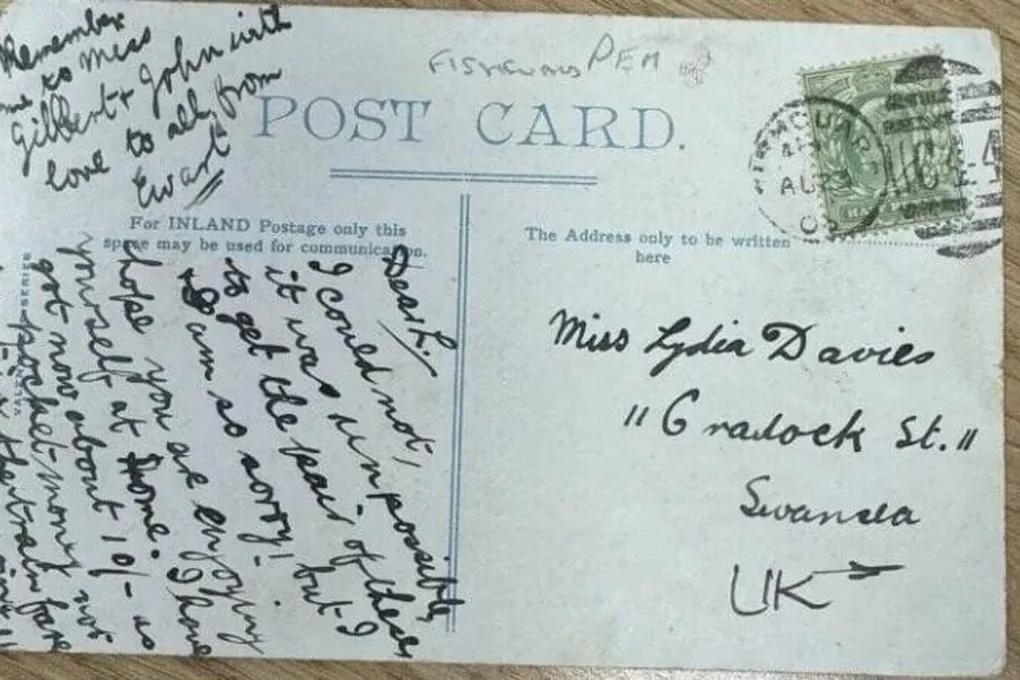 Remember
me to Miss
Gilbert & John with
love to all from
Ewart
PEM
POST CARD.
For INLAND Postage only this
space may be used for communication.
The Address only to be written
here
Dear L.
I could not,
it was unpossible,
to get the pair of these
but I
am so sorry!
I hope you are enjoying
yourself at home. I have
got now about 10/- as
pocket-money not
the train fare
Miss Lydia Davies
"Cradock St."
Swansea
UK
AU
SERIES